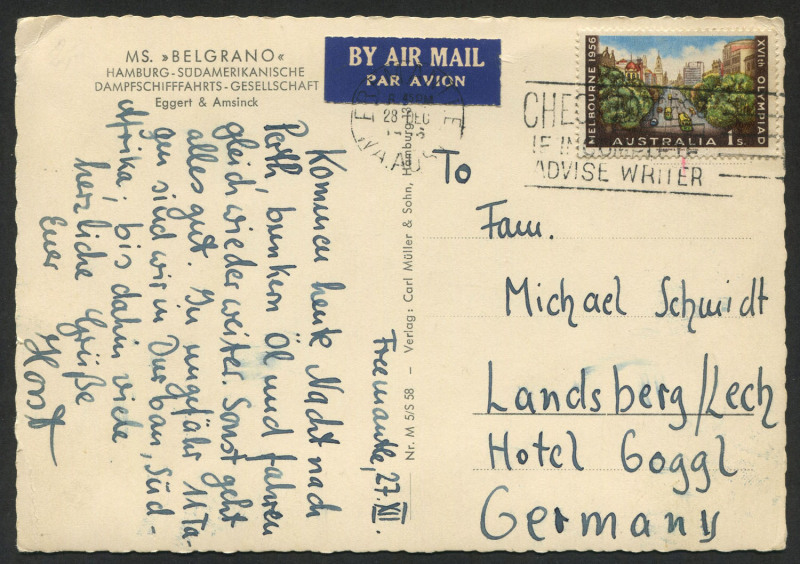 MS. »BELGRANO«
HAMBURG-SÜDAMERIKANISCHE
DAMPFSCHIFFFAHRTS-GESELLSCHAFT
Eggert & Amsinck
BY AIR MAIL
PAR AVION
28 DEC
CHE
IF INCOMPLETE
ADVISE WRITER
MELBOURNE 1956
XVIth OLYMPIAD
AUSTRALIA 1s.
Freemantle, 27.XII.
Kommen heute Nacht nach
Perth, bunkern Öl und fahren
gleich wieder weiter. Sonst geht
alles gut. In ungefähr 11 Ta-
gen sind wir in Durban, Süd-
Afrika; bis dahin viele
herzliche Grüße
Euer
Horst
Nr. M 5/S 58 – Verlag: Carl Müller & Sohn, Hamburg 13
To
Fam.
Michael Schmidt
Landsberg/Lech
Hotel Goggl
Germany